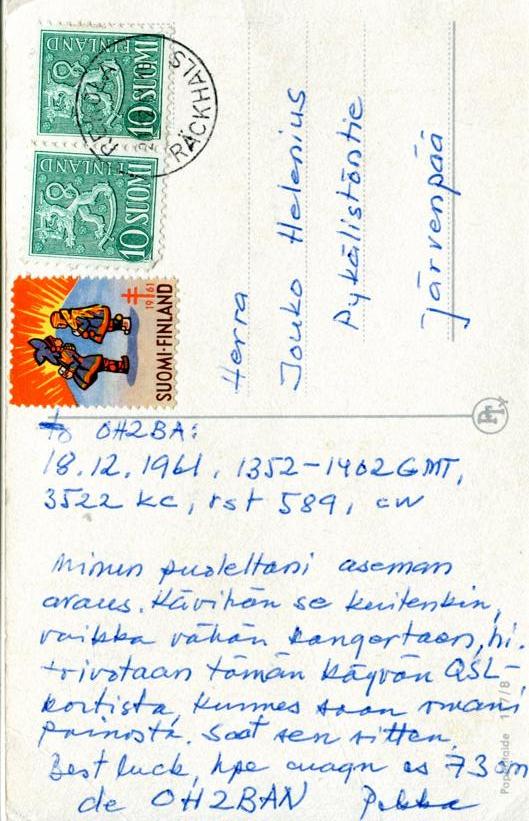 10 SUOMI
FINLAND
10 SUOMI
FINLAND
RÄCKHALS
SUOMI-FINLAND
1961
Herra
Jouko Helenius
Pykälistöntie
Järvenpää
to OH2BA:
18.12.1961, 1352-1402 GMT,
3522 kc, rst 589, cw
Minun puoleltani aseman
avaus. Kävihän se kuitenkin,
vaikka vähän kangertaen, hi.
toivotaan tämän käyvän QSL-
kortista, kunnes saan omani
painosta. Saat sen sitten.
Best luck, hpe cuagn es 73 om
de OH2BAN Pekka